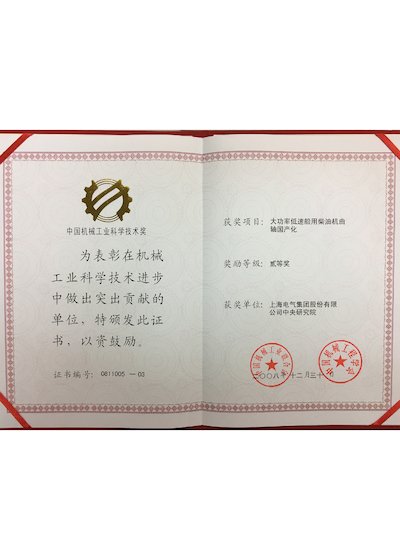 中国机械工业科学技术奖
为表彰在机械
工业科学技术进步
中做出突出贡献的
单位，特颁发此证
书，以资鼓励。
证书编号：0811005 —03
获奖项目：大功率低速船用柴油机曲
轴国产化
奖励等级：贰等奖
获奖单位：上海电气集团股份有限
公司中央研究院
中国机械工业联合会
中国机械工程学会
二〇〇八年十二月三十